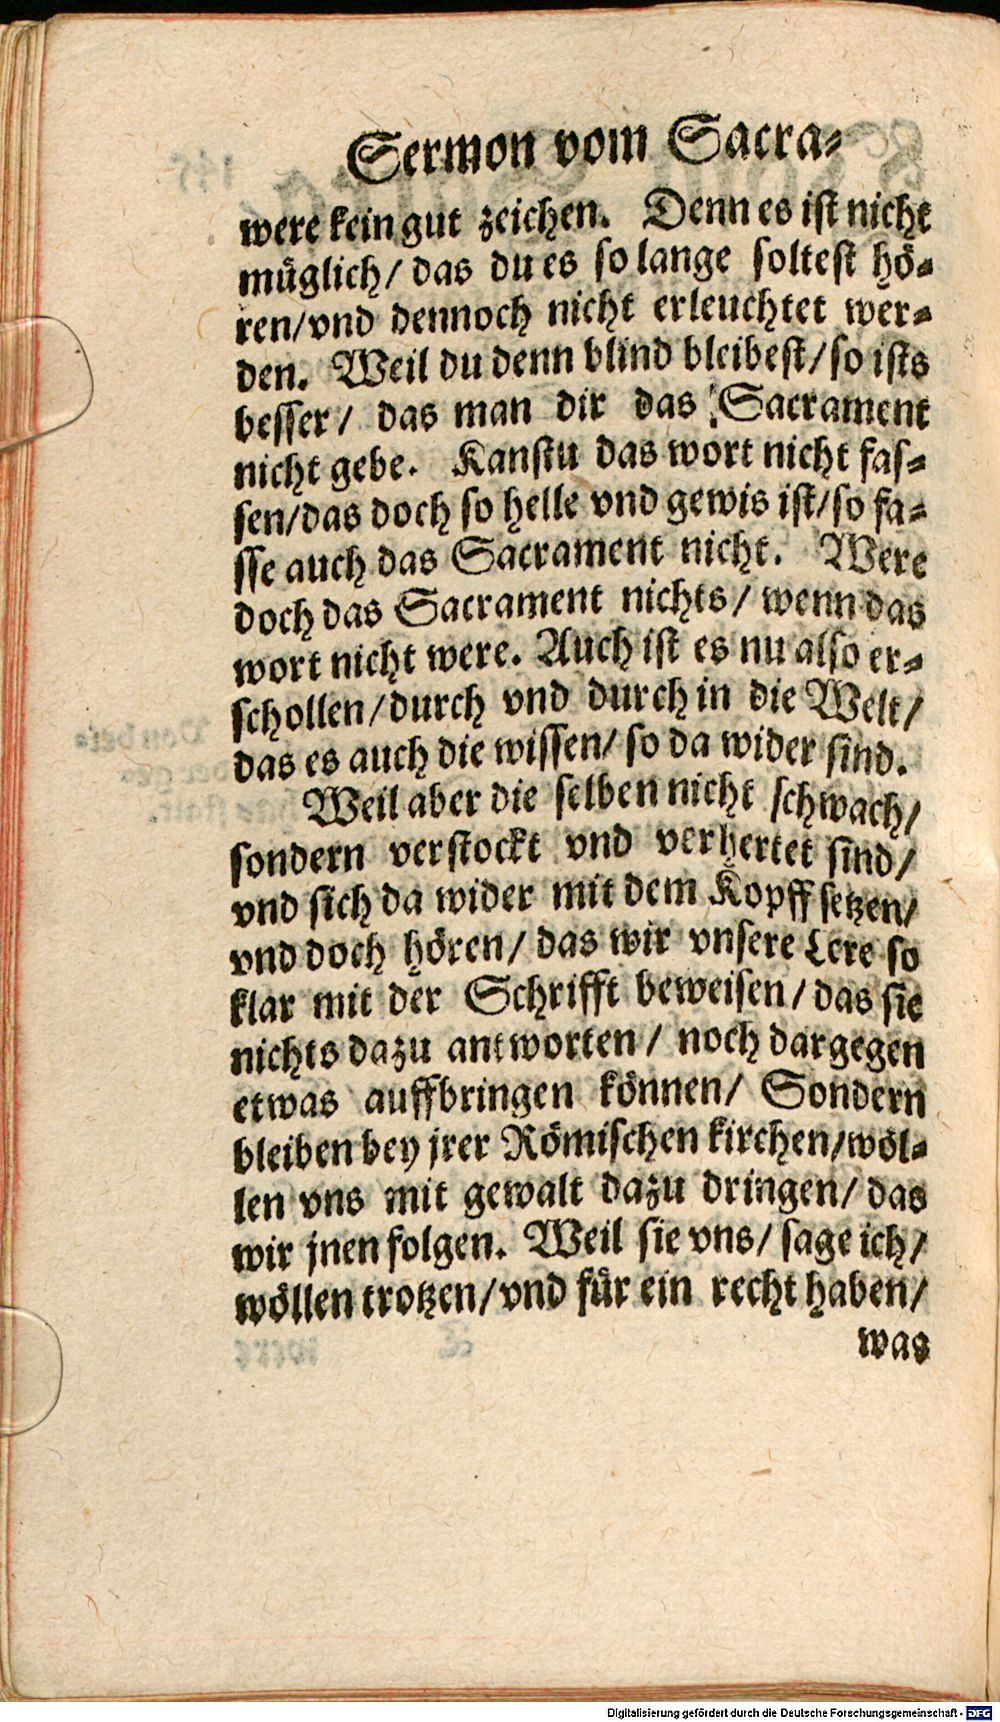 Sermon vom Sacra-
were kein gut zeichen. Denn es ist nicht
müglich/ das du es so lange soltest hö-
ren/ vnd dennoch nicht erleuchtet wer-
den. Weil du denn blind bleibest/ so ists
besser/ das man dir das Sacrament
nicht gebe. Kanstu das wort nicht fas-
sen/ das doch so helle vnd gewis ist/ so fa-
sse auch das Sacrament nicht. Were
doch das Sacrament nichts/ wenn das
wort nicht were. Auch ist es nu also er-
schollen/ durch vnd durch in die Welt/
das es auch die wissen/ so da wider sind.
Weil aber die selben nicht schwach/
sondern verstockt vnd verhertet sind/
vnd sich da wider mit dem Kopff setzen/
vnd doch hören/ das wir vnsere Lere so
klar mit der Schrifft beweisen/ das sie
nichts dazu antworten/ noch dargegen
etwas auffbringen können/ Sondern
bleiben bey jrer Römischen kirchen/ wöl-
len vns mit gewalt dazu dringen/ das
wir jnen folgen. Weil sie vns/ sage ich/
wöllen trotzen/ vnd für ein recht haben/
was
Digitalisierung gefördert durch die Deutsche Forschungsgemeinschaft - DFG